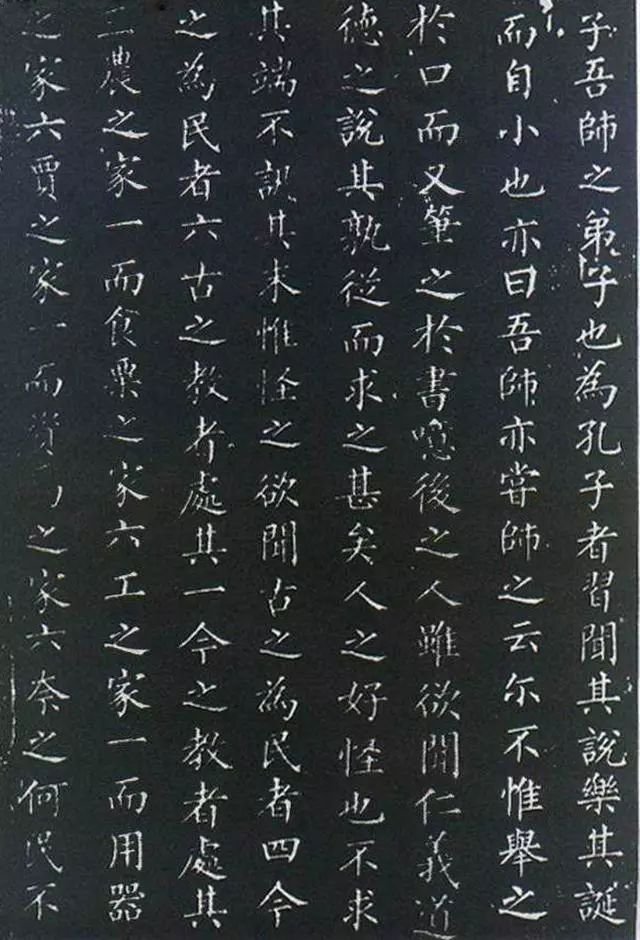 子吾師之弟子也為孔子者習聞其說樂其誕
而自小也亦曰吾師亦嘗師之云尔不惟舉之
於口而又筆之於書噫後之人雖欲聞仁義道
德之說其孰從而求之甚矣人之好怪也不求
其端不訊其末惟怪之欲聞古之為民者四今
之為民者六古之教者處其一今之教者處其
三農之家一而食粟之家六工之家一而用器
之家六賈之家一而資之家六奈之何民不